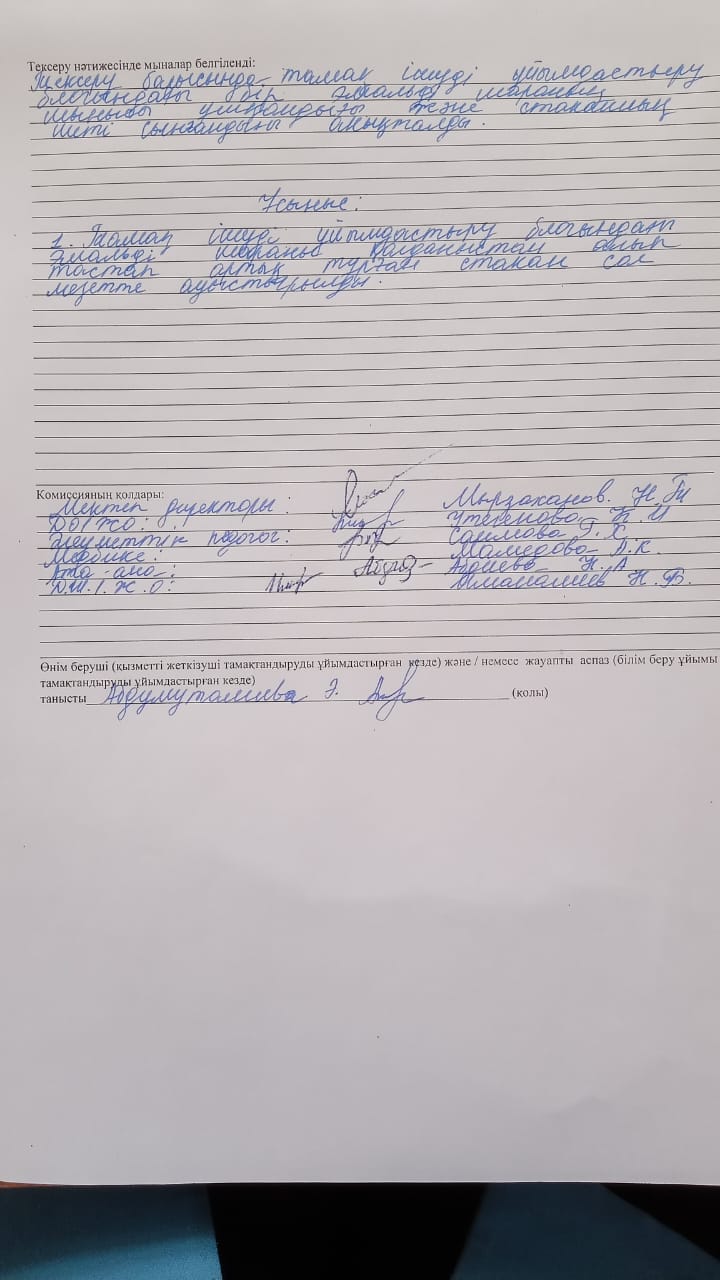 Тексеру нәтижесінде мыналар белгіленді:
Тексеру барысында тамақ ішуді ұйымдастыру
блогындағы бір эмальді шараның
шыныбы ұшқандығы және стақанның
шеті сынғандығы анықталды.
Ұсыныс:
1. Тамақ ішуді ұйымдастыру блогындағы
эмальді шараны қолданыстан алып
тастап артық тұрған стакан сол
мезетте ауыстырылды.
Комиссияның қолдары:
Мектеп директоры: Мырзаханов. Н.
ДОІЖО: Утегенова Б. И
Әлеуметтік педагог: Саимова Г. Х
Медбике: Мамедова Л.К.
Ата-ана: Абдиева Н. А
Д.Ш.І.Ж.О: Иманалиев Н. Б.
Өнім беруші (қызметті жеткізуші тамақтандыруды ұйымдастырған кезде) және / немесе жауапты аспаз (білім беру ұйымы
тамақтандыруды ұйымдастырған кезде)
танысты Абдумуталиева Э. (қолы)